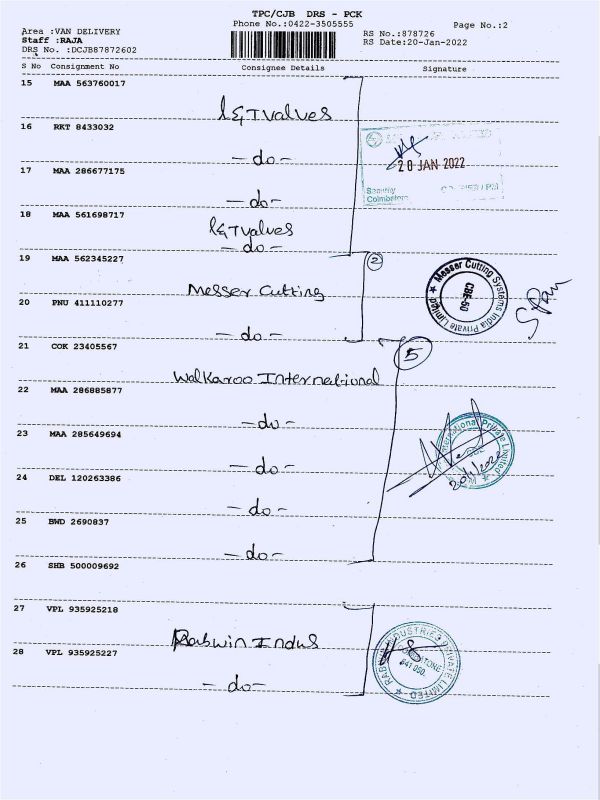 TPC/CJB DRS - PCK
Phone No.:0422-3505555
Page No.:2
Area :VAN DELIVERY
Staff :RAJA
DRS No. :DCJB87872602
RS No.:878726
RS Date:20-Jan-2022
S No Consignment No Consignee Details Signature
15 MAA 563760017
L&T Valves
16 RKT 8433032
- do -
20 JAN 2022
17 MAA 286677175
- do -
Security
Coimbatore
18 MAA 561698717
L&T Valves
- do -
19 MAA 562345227
2
Messer Cutting
Messer Cutting Systems India Private Limited
CBE-50
20 PNU 411110277
- do -
21 COK 23405567
5
Walkaroo International
22 MAA 286885877
- do -
International Private Limited
23 MAA 285649694
- do -
20/1/2022
24 DEL 120263386
- do -
25 BWD 2690837
- do -
26 SHB 500009692
27 VPL 935925218
Rabwin Indus
RABWIN INDUSTRIES PRIVATE LIMITED
641 050.
28 VPL 935925227
- do -